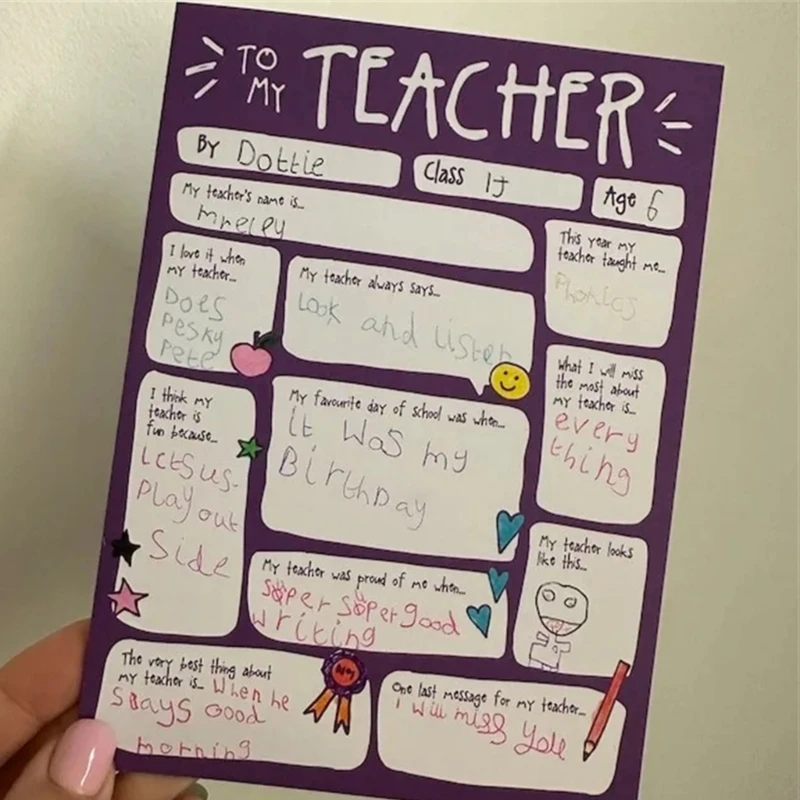 TO MY TEACHER
BY Dottie
Class 1J
Age 6
My teacher's name is...
mreley
This year my
teacher taught me...
Phonics
I love it when
my teacher...
Does
Pesky
Pete
My teacher always says...
Look and listen
What I will miss
the most about
my teacher is...
every
thing
I think my
teacher is
fun because...
Letsus
Play out
Side
My favourite day of school was when...
it was my
Birthday
My teacher looks
like this...
My teacher was proud of me when...
super super good
writing
The very best thing about
my teacher is... When he
says Good
morning
One last message for my teacher...
I will miss you